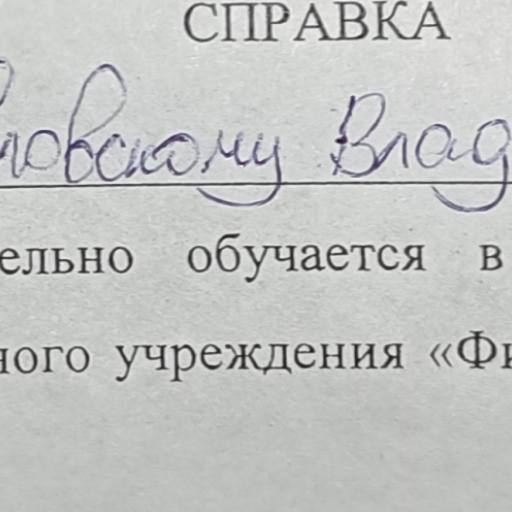 СПРАВКА
ловскому Влад
ельно обучается в
ного учреждения «Фи